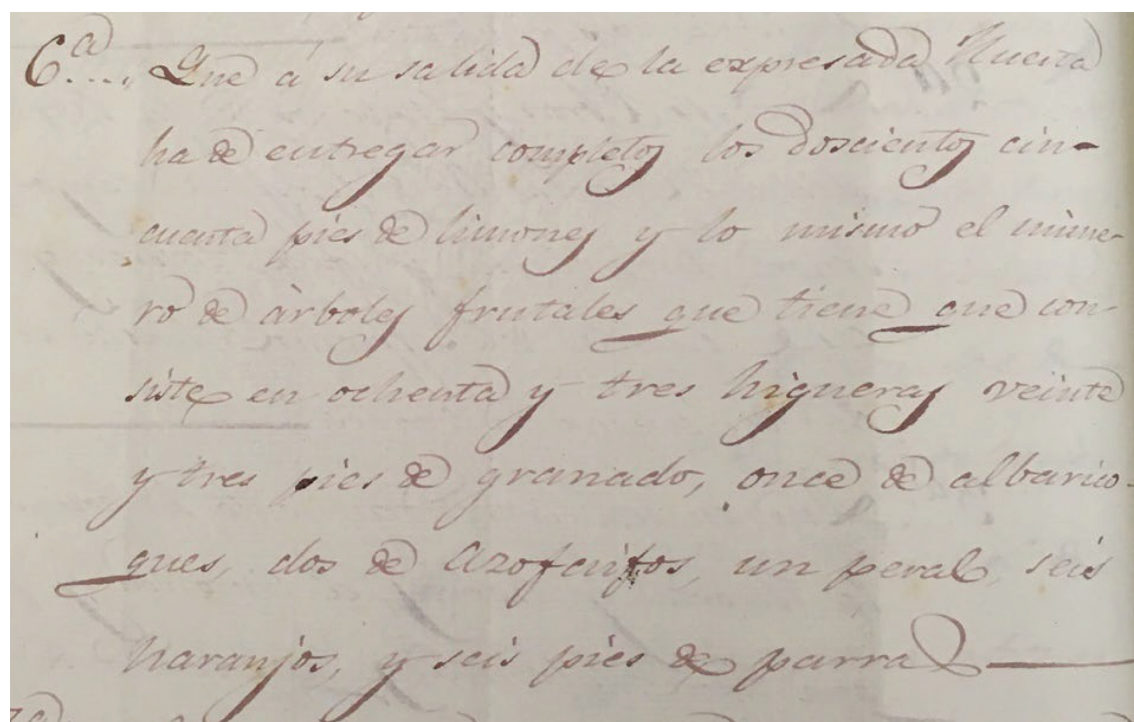 6.ª... Que á su salida de la expresada Huerta
ha de entregar completos los doscientos cin-
cuenta pies de limones y lo mismo el núme-
ro de árboles frutales que tiene que con-
siste en ochenta y tres higueras veinte
y tres pies de granado, once de albarico-
ques, dos de Azofeifos, un peral, seis
naranjos, y seis pies de parra